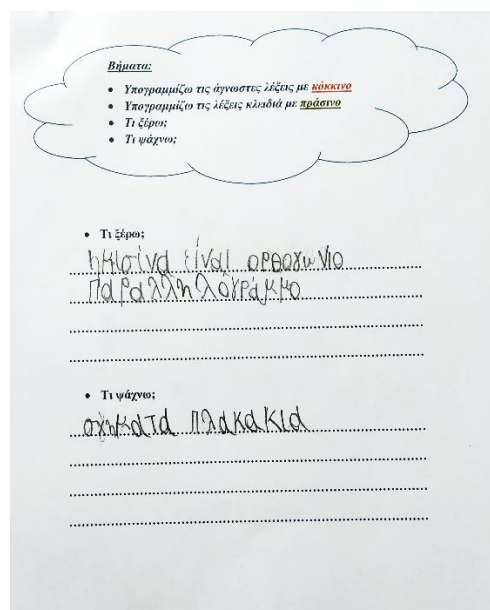 Βήματα:
• Υπογραμμίζω τις άγνωστες λέξεις με κόκκινο
• Υπογραμμίζω τις λέξεις κλειδιά με πράσινο
• Τι ξέρω;
• Τι ψάχνω;
• Τι ξέρω;
η πισίνα είναι ορθογώνιο
παραλληλόγραμμο
• Τι ψάχνω;
σχηματα πλακακια